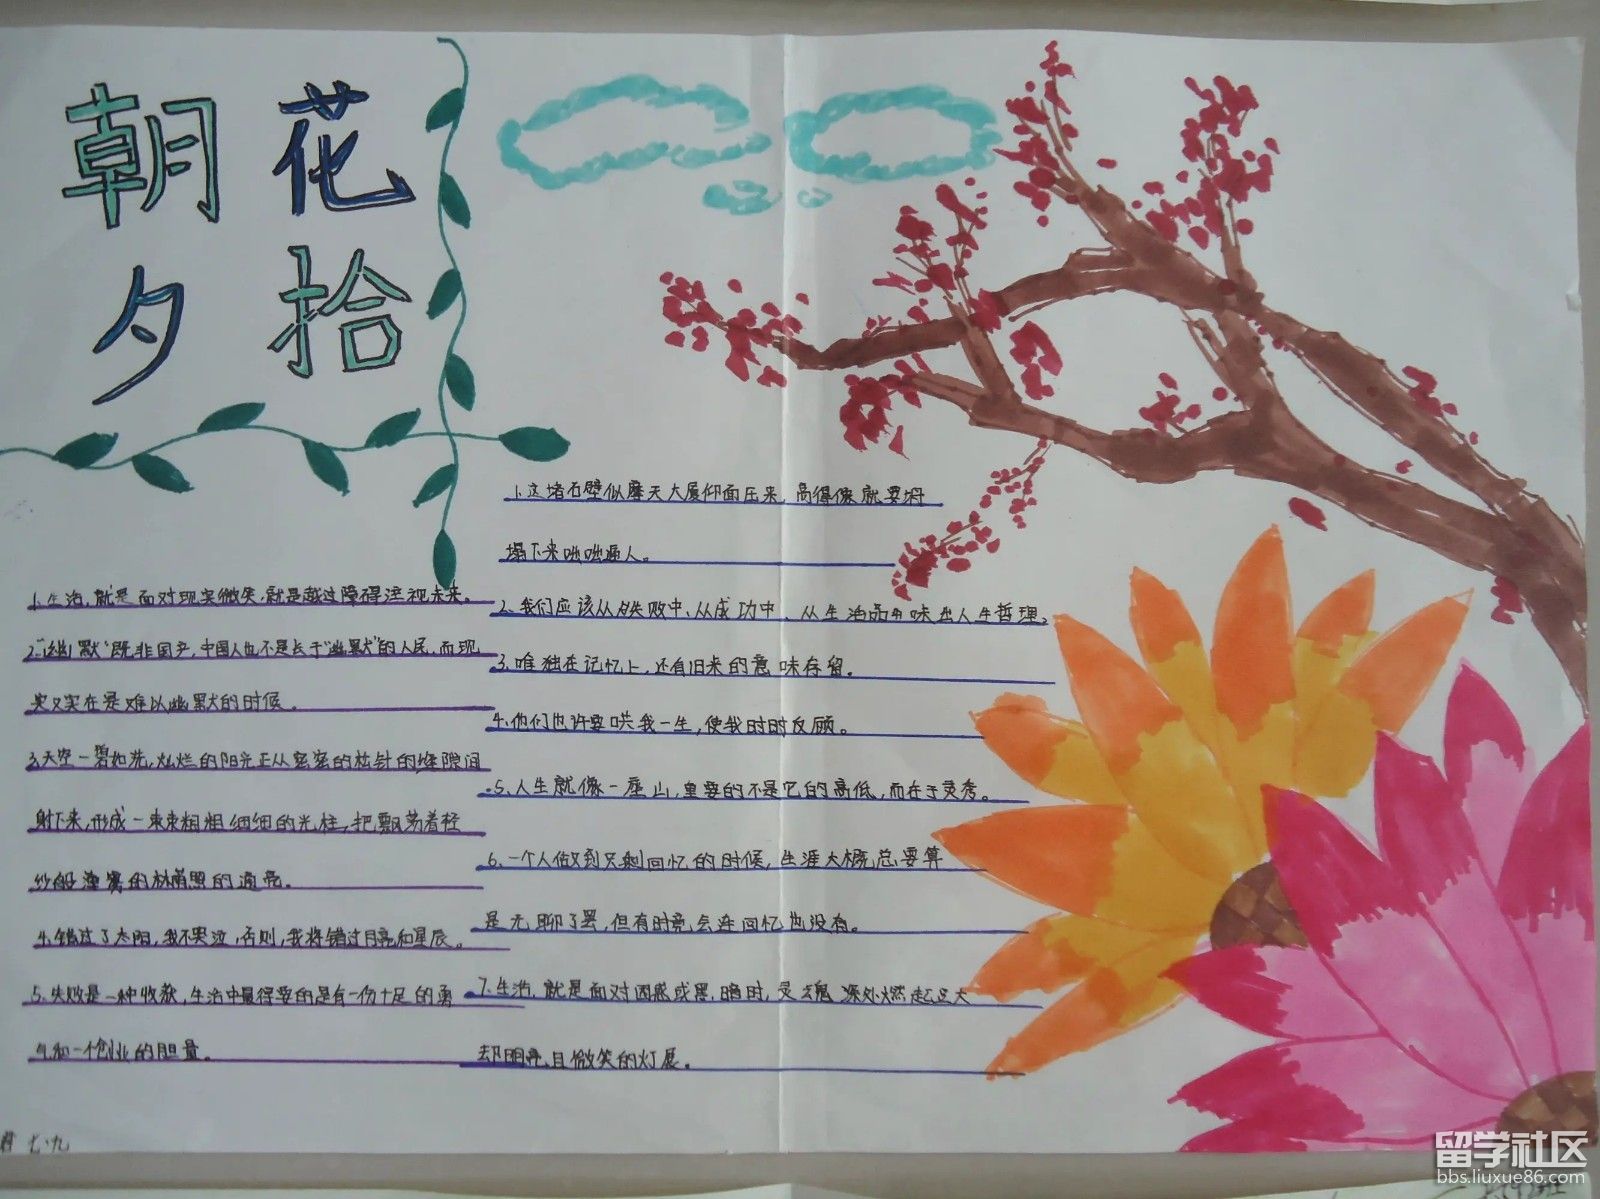 朝花
夕拾
1.生活,就是面对现实微笑,就是越过障碍注视未来。
2."幽默"既非国产,中国人也不是长于"幽默"的人民,而现
实又实在是难以幽默的时候。
3.天空一碧如洗,灿烂的阳光正从密密的松针的缝隙间
射下来,形成一束束粗粗细细的光柱,把飘荡着轻
纱般薄雾的林荫照的通亮。
4.错过了太阳,我不哭泣,否则,我将错过月亮和星辰。
5.失败是一种收获,生活中最得要的是有一份十足的勇
气和一个创业的胆量。
1.这堵石壁似摩天大厦仰面压来,高得像就要坍
塌下来咄咄逼人。
2、我们应该从失败中、从成功中、从生活品味出人生哲理。
3.唯独在记忆上,还有旧来的意味存留。
4.他们也许要哄我一生,使我时时反顾。
5、人生就像一座山,重要的不是它的高低,而在于灵秀。
6.一个人做到只剩回忆的时候,生涯大概总要算
是无聊了罢,但有时竟会连回忆也没有。
7.生活,就是面对困惑或黑暗时,灵魂深处燃起
却明亮且微笑的灯展。
七.九
留学社区
bbs.liuxue86.com